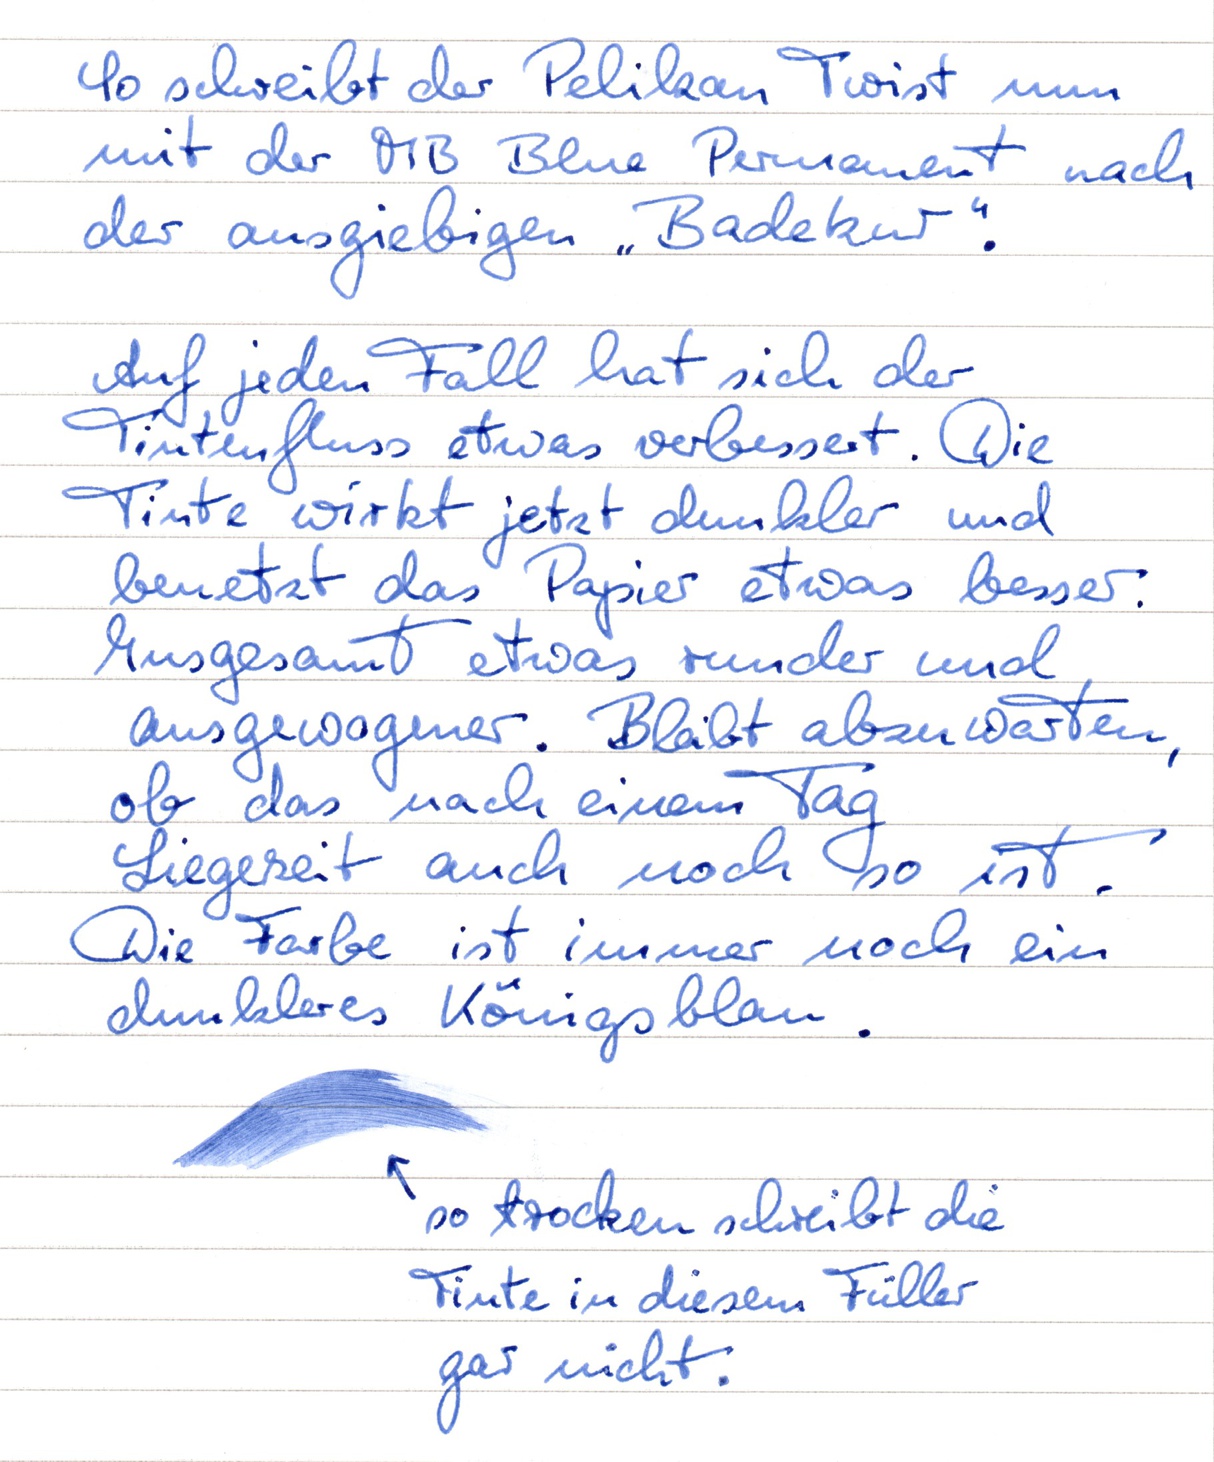 So schreibt der Pelikan Twist nun
mit der MB Blue Permanent nach
der ausgiebigen „Badekur“.
Auf jeden Fall hat sich der
Tintenfluss etwas verbessert. Die
Tinte wirkt jetzt dunkler und
benetzt das Papier etwas besser.
Insgesamt etwas runder und
ausgewogener. Bleibt abzuwarten,
ob das nach einem Tag
Liegezeit auch noch so ist.
Die Farbe ist immer noch ein
dunkleres Königsblau.
so trocken schreibt die
Tinte in diesem Füller
gar nicht.